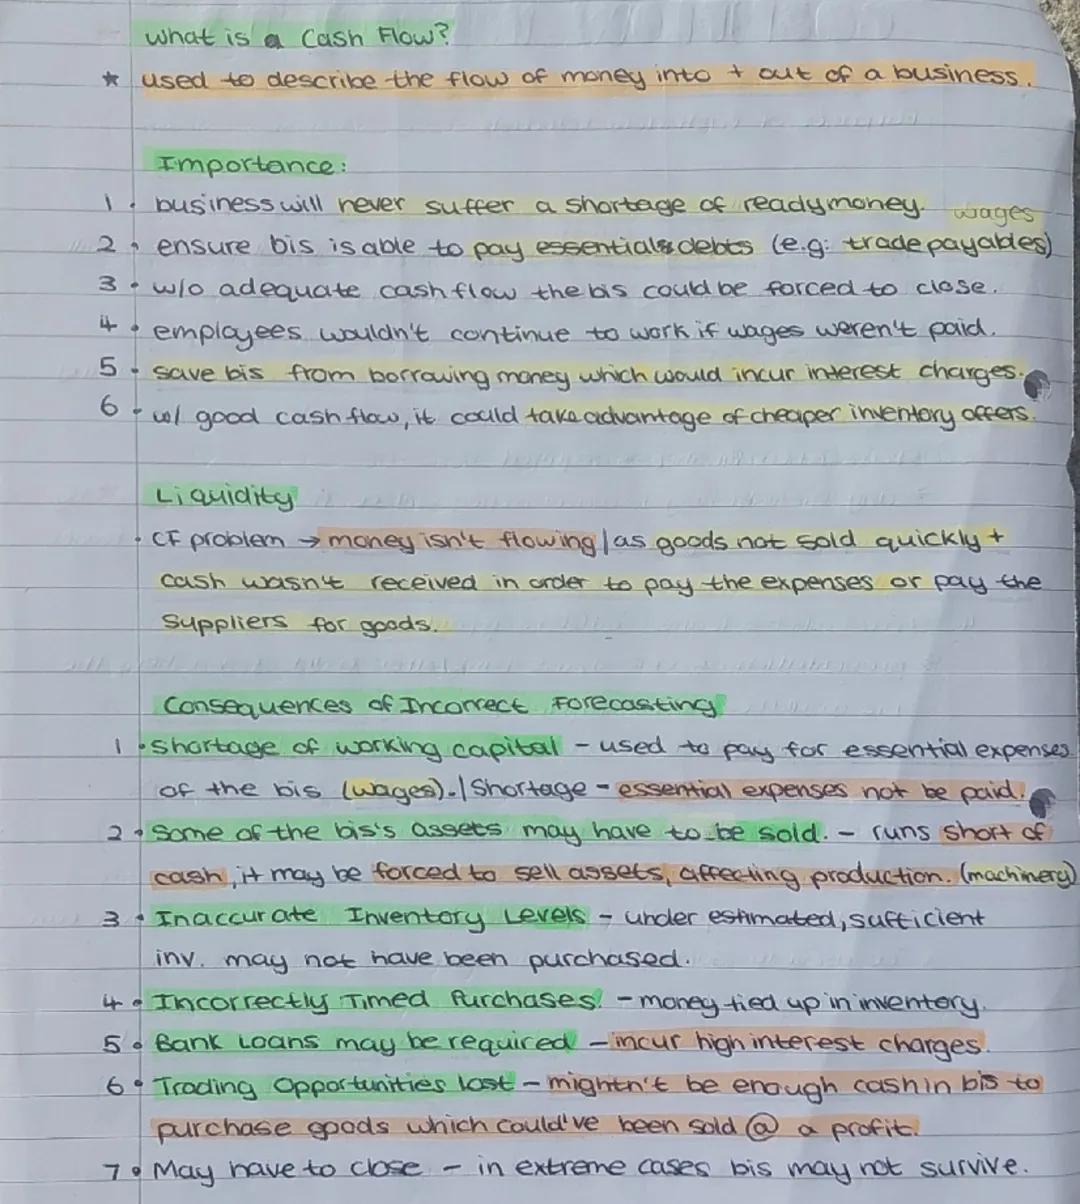 What is a Cash Flow?
* used to describe the flow of money into + out of a business.
Importance:
1 • business will never suffer a shortage of ready money. wages
2 • ensure bis is able to pay essentials debts (e.g: trade payables)
3 • w/o adequate cash flow the bis could be forced to close.
4 • employees wouldn't continue to work if wages weren't paid.
5 • save bis from borrowing money which would incur interest charges.
6 • w/ good cash flow, it could take advantage of cheaper inventory offers.
Liquidity
• CF problem → money isn't flowing / as goods not sold quickly +
cash wasn't received in order to pay the expenses or pay the
suppliers for goods.
Consequences of Incorrect Forecasting
1 • Shortage of working capital - used to pay for essential expenses
of the bis (wages). / Shortage - essential expenses not be paid.
2 • Some of the bis's assets may have to be sold. - runs short of
cash, it may be forced to sell assets, affecting production. (machinery)
3 • Inaccurate Inventory Levels - under estimated, sufficient
inv. may not have been purchased.
4 • Incorrectly Timed Purchases. - money tied up in inventory.
5 • Bank Loans may be required - incur high interest charges.
6 • Trading Opportunities lost - mightn't be enough cash in bis to
purchase goods which could've been sold @ a profit.
7 • May have to close - in extreme cases bis may not survive.